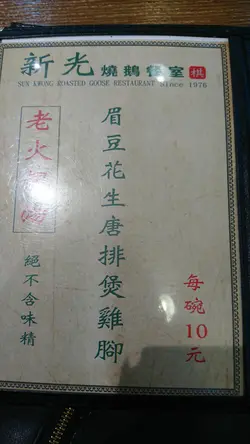 新光燒鵝餐室
SUN KWONG ROASTED GOOSE RESTAURANT Since 1976
老火靚湯
絕不含味精
眉豆花生唐排煲雞腳
每碗10元